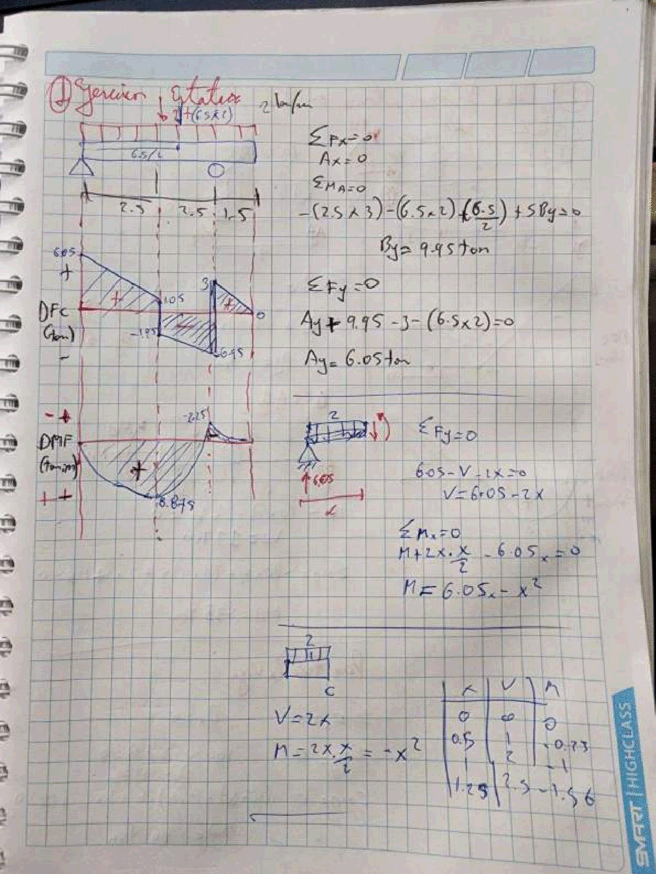 ① Ejercicio Estatica 2 ton/m
3 + (6.5x2)
6.5/2
2.5 2.5 1.5
ΣFx=0
Ax=0
ΣMA=0
-(2.5x3)-(6.5x2)(6.5/2)+5By=0
By=9.95ton
ΣFy=0
Ay+9.95-3-(6.5x2)=0
Ay=6.05ton
6.05
+
DFC
(ton)
-
+
1.05
-1.95
-
-6.95
3
+
0
- +
DMF
(ton.m)
+ +
+
8.875
-2.25
2
6.05
x
ΣFy=0
6.05-V-2x=0
V=6.05-2x
ΣMx=0
M+2x.x/2-6.05x=0
M=6.05x-x²
2
C
V=2x
M=2x.x/2=-x²
x V M
0 0 0
0.5 1 -0.25
1 2 -1
1.25 2.5 -1.56
SMART | HIGHCLASS